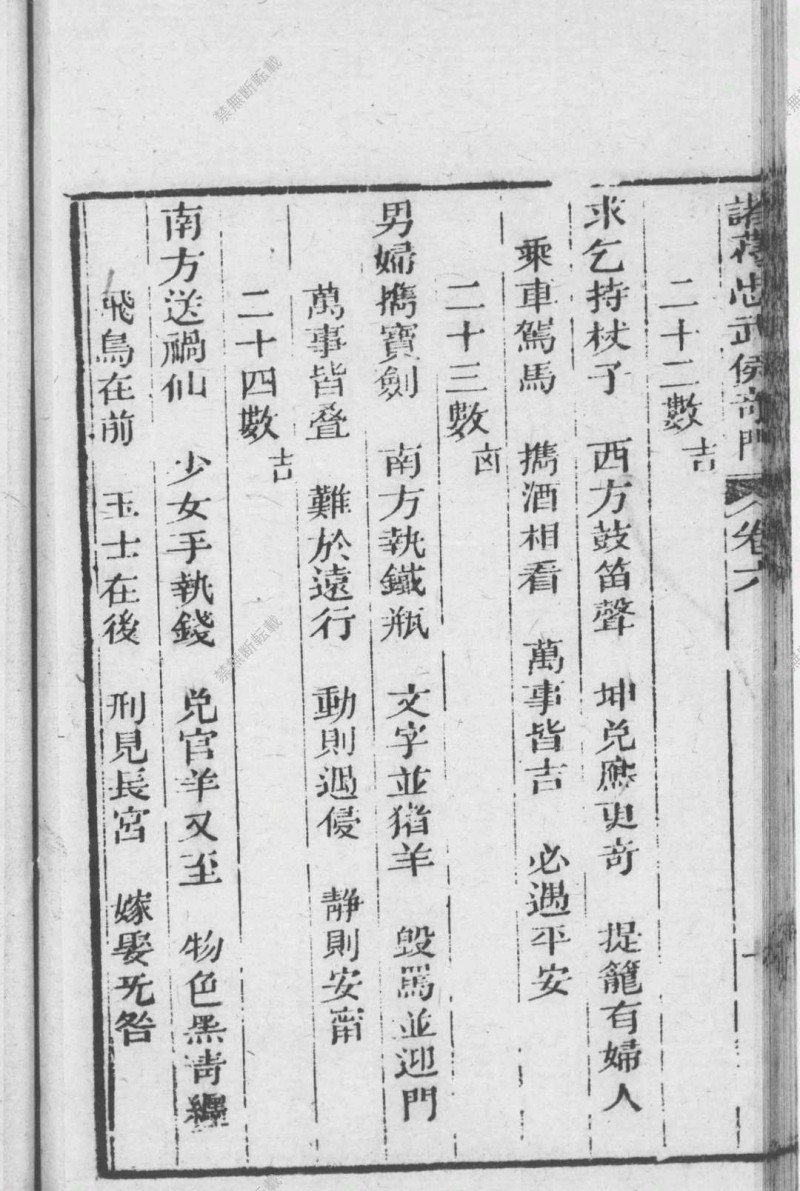 諸葛忠武侯奇門 卷六
二十二數 吉
求乞持杖子 西方鼓笛聲 坤兌應更奇 提籠有婦人
乘車駕馬 携酒相看 萬事皆吉 必遇平安
二十三數 凶
男婦携寶劍 南方執鐵瓶 文字並猪羊 毀罵並迎門
萬事皆叠 難於遠行 動則遇侵 静則安甯
二十四數 吉
南方送禍仙 少女手執錢 兌官羊又至 物色黑青纒
飛鳥在前 玉士在後 刑見長宮 嫁娶旡咎
禁無断転載
禁無断転載
禁無断転載